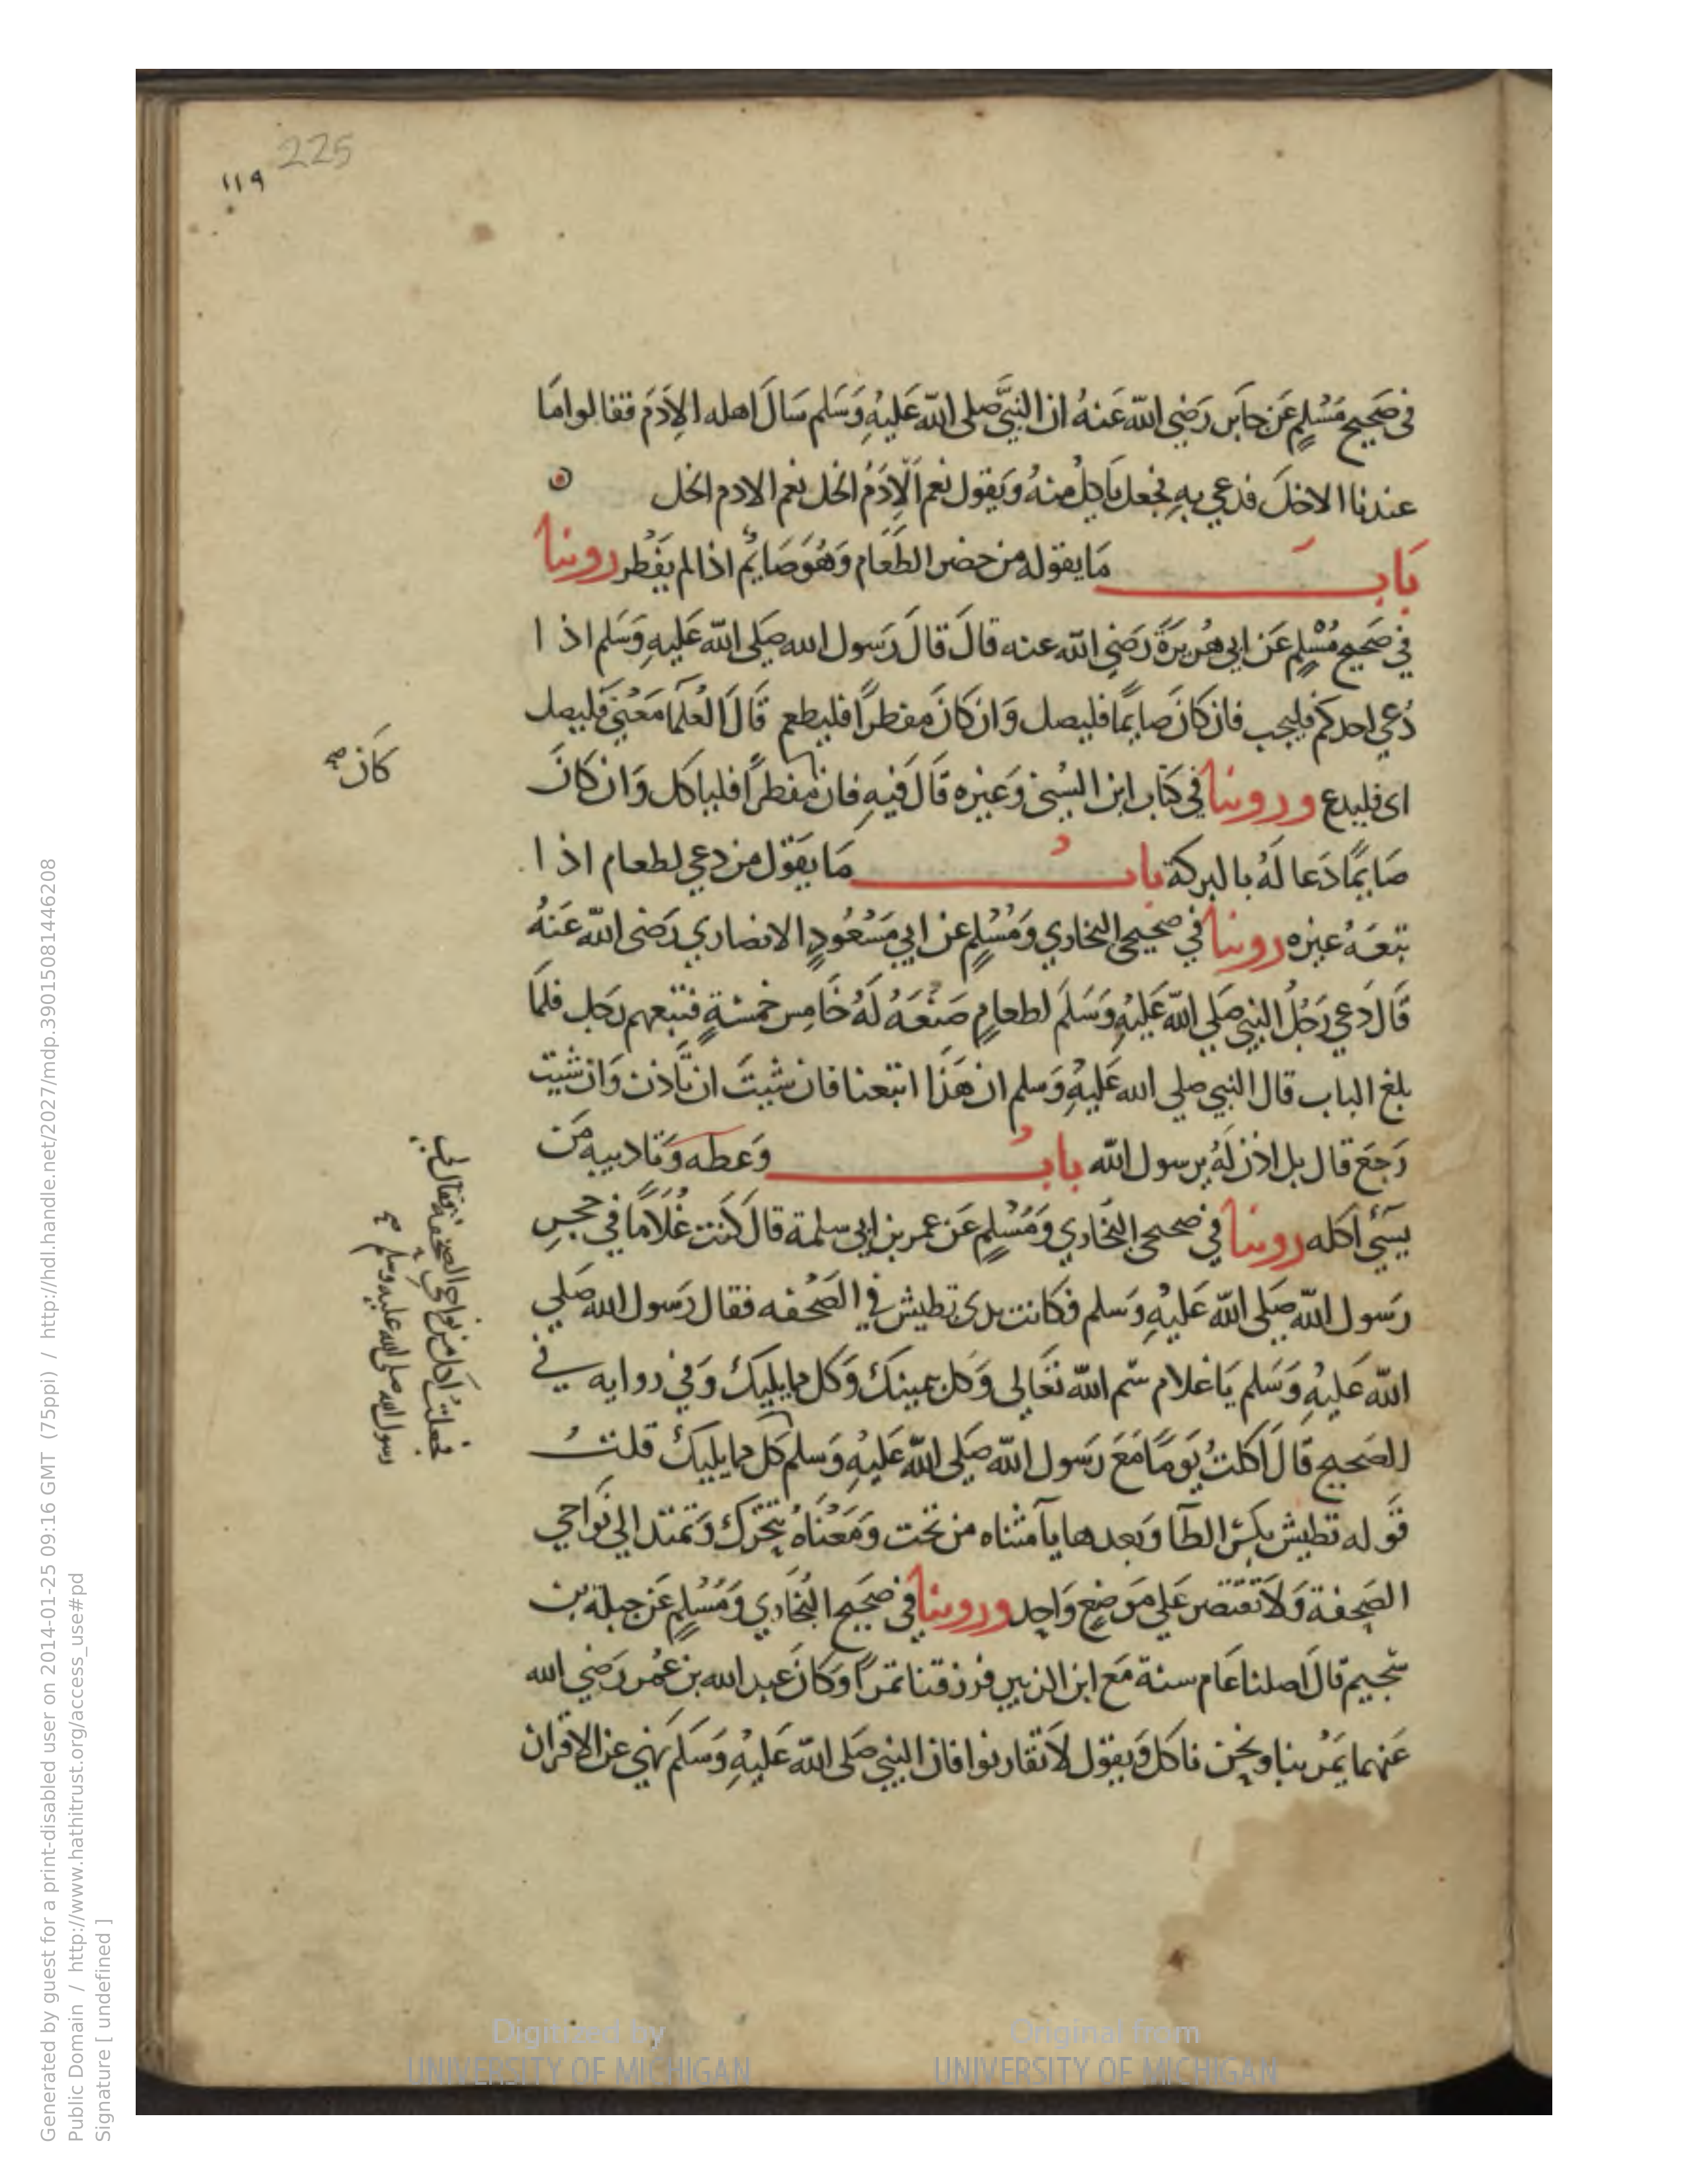 225
١١٩
في صَحيح مُسْلِم عَن جابَر رَضي الله عَنهُ ان النبيَّ صلى الله عَليهِ وَسَلم سَالَ اهله الإدَمَ فقالوا مَا
عندنا الا خلَ فدعي بهِ فجعل ياكِلُ منهُ وَيَقول نعم الاِدَمُ الخل نعم الادم الخل
بَابَ مَا يقوله من حضر الطعَام وَهُوَ صَايمُ اذا لم يَفْطر روينا
في صَحيح مُسْلِم عَن ابي هُريرَةَ رَضي الله عنه قالَ قالَ رَسول الله صَلى الله عَليهِ وَسَلم اذا
دُعي احدكم فليجب فان كانَ صايمًا فليصل وَان كانَ مفطرًا فليطعم قَالَ العُلمَا مَعْنى فَليصل
اى فليدع وروينا في كتاب ابن السُني وَغيره قَالَ فيهِ فان مفطرًا فلياكل وَان كانَ
كان صح
صَايمًا دَعا لهُ بالبركة بابُ مَا يَقوْل من دعي لطعام اذا
تبعَهُ غيره روينا في صحيحي البخاري وَمُسْلِم عن ابي مَسْعُودٍ الانصاري رَضى الله عَنهُ
قَالَ دَعي رَجُلُ النبي صَلي الله عَليهِ وَسَلمَ لطعامٍ صَنعَهُ لهُ خَامِس خمسَةٍ فتبعهم رَجل فلما
بلغ الباب قال النبي صلي الله عَليهِ وَسلم ان هَذا اتبعنا فان شيتَ ان تَاذن وَان شيت
رَجَعَ قال بل اذن لهُ يرسول الله بابُ وَعظه وَتاديبه مَن
يسَئ اكله روينا في صحيحي البخَاري وَمُسْلِم عَن عمر بن ابي سلمة قالَ كنت غُلَامًا في حجرِ
رَسول الله صَلى الله عَليهِ وَسلم فكانت يدى تطيش في الصَحْفه فقال رَسول الله صَلي
الله عَليهِ وَسَلم يَا غلام سَم الله تعَالى وَكل بيمينكَ وَكل مما يليكَ وَفي روايه في
الصَحيح قَالَ اكلتُ يَومًا مَعَ رَسول الله صَلى الله عَليهِ وَسلم كل مما يليكَ قلتُ
فجعلتُ اكل من نواحي الصحفه فقال لي
رسول الله صلى الله عليه وسلم صح
قَوله تطيش بكسْر الطآ وَبعدها يآ مثناه من تحت وَمَعْنَاهُ يتحَرَك وَتمتد الي نوَاحي
الصَحفة وَلا تَقتصر عَلي مَوضِع وَاحِد وروينا في صَحيح البُخَاري وَمُسْلِم عَن جبلة بن
سُحيم قالَ اصلنا عَام سنة مَع ابن الزبير فرزقنا تمرًا وَكانَ عبد الله بن عُمر رَضي الله
عَنهما يَمُر بنا ونحن ناكل وَيقوْل لا تقارنوا فان النبي صَلى الله عَليهِ وَسَلمَ نهي عن الاقران
Generated by guest for a print-disabled user on 2014-01-25 09:16 GMT (75ppi) / http://hdl.handle.net/2027/mdp.39015081446208
Public Domain / http://www.hathitrust.org/access_use#pd
Signature [ undefined ]
Digitized by
UNIVERSITY OF MICHIGAN
Original from
UNIVERSITY OF MICHIGAN